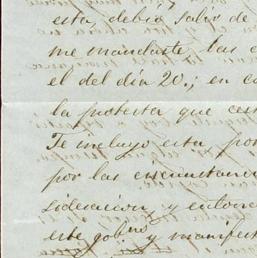 esta, debió salir de
me mandaste, las c
el del día 20,; en c
la protesta que ces
Te incluyo esta por
por las circunstanc
sideracion, y entonc
este gob.no y manifest